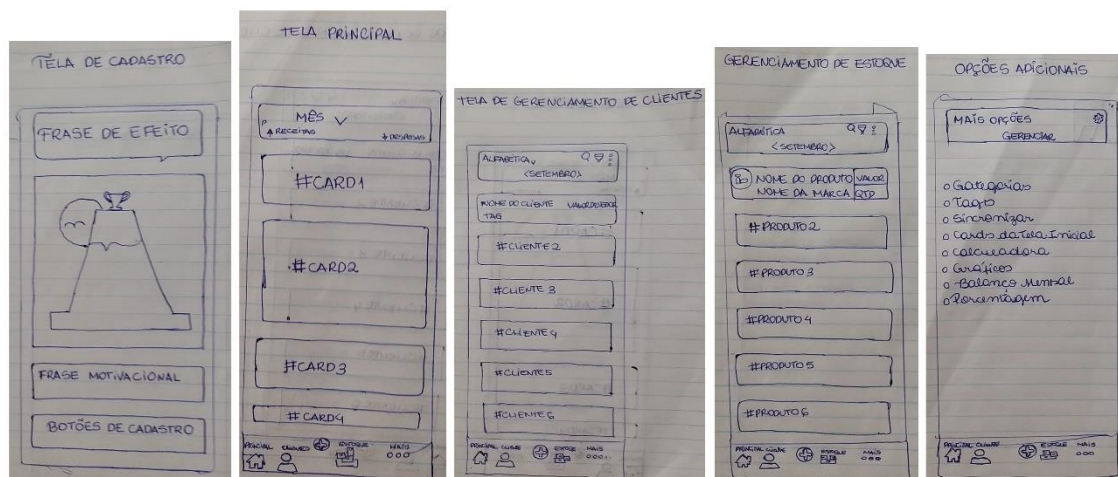 TELA DE CADASTRO
FRASE DE EFEITO
FRASE MOTIVACIONAL
BOTÕES DE CADASTRO
TELA PRINCIPAL
MÊS
RECEITAS
DESPESAS
#CARD1
#CARD2
#CARD3
#CARD4
PRINCIPAL CLIENTES ESTOQUE MAIS
TELA DE GERENCIAMENTO DE CLIENTES
ALFABÉTICA
<SETEMBRO>
NOME DO CLIENTE VALOR DEVEDOR
TAG
#CLIENTE2
#CLIENTE 3
#CLIENTE4
#CLIENTE5
#CLIENTE6
PRINCIPAL CLIENTE ESTOQUE MAIS
GERENCIAMENTO DE ESTOQUE
ALFABÉTICA
<SETEMBRO>
NOME DO PRODUTO VALOR
NOME DA MARCA QTD
#PRODUTO2
#PRODUTO3
#PRODUTO4
#PRODUTO5
#PRODUTO6
PRINCIPAL CLIENTE ESTOQUE MAIS
OPÇÕES ADICIONAIS
MAIS OPÇÕES
GERENCIAR
Categorias
Tags
Sincronizar
Cards da Tela Inicial
Calculadora
Gráficos
Balanço Mensal
Porcentagem
PRINCIPAL CLIENTES ESTOQUE MAIS